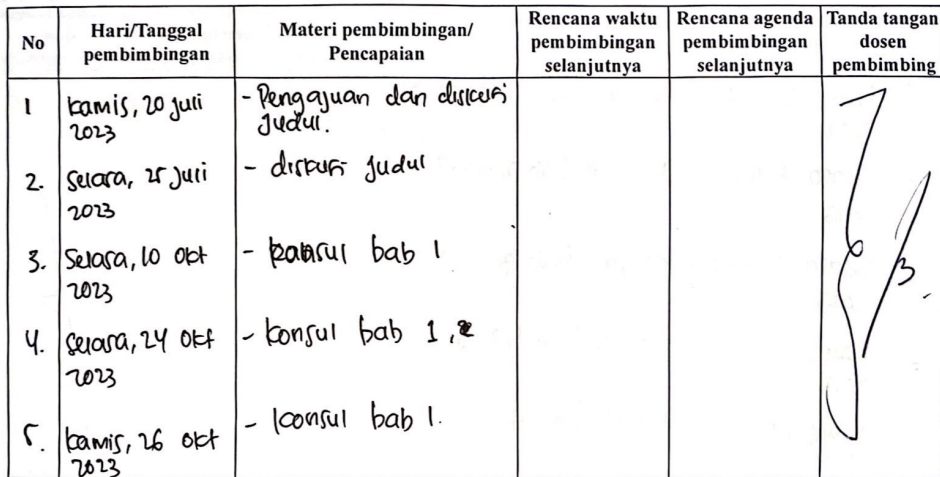 No
Hari/Tanggal
pembimbingan
Materi pembimbingan/
Pencapaian
Rencana waktu
pembimbingan
selanjutnya
Rencana agenda
pembimbingan
selanjutnya
Tanda tangan
dosen
pembimbing
1 kamis, 20 juli - Pengajuan dan diskusi
2023 Judul.
2. Selasa, 25 juli - diskusi judul
2023
3. Selasa, 10 okt - konsul bab 1
2023
4. Selasa, 24 okt - konsul bab 1, 2
2023
5. kamis, 26 okt - konsul bab 1.
2023